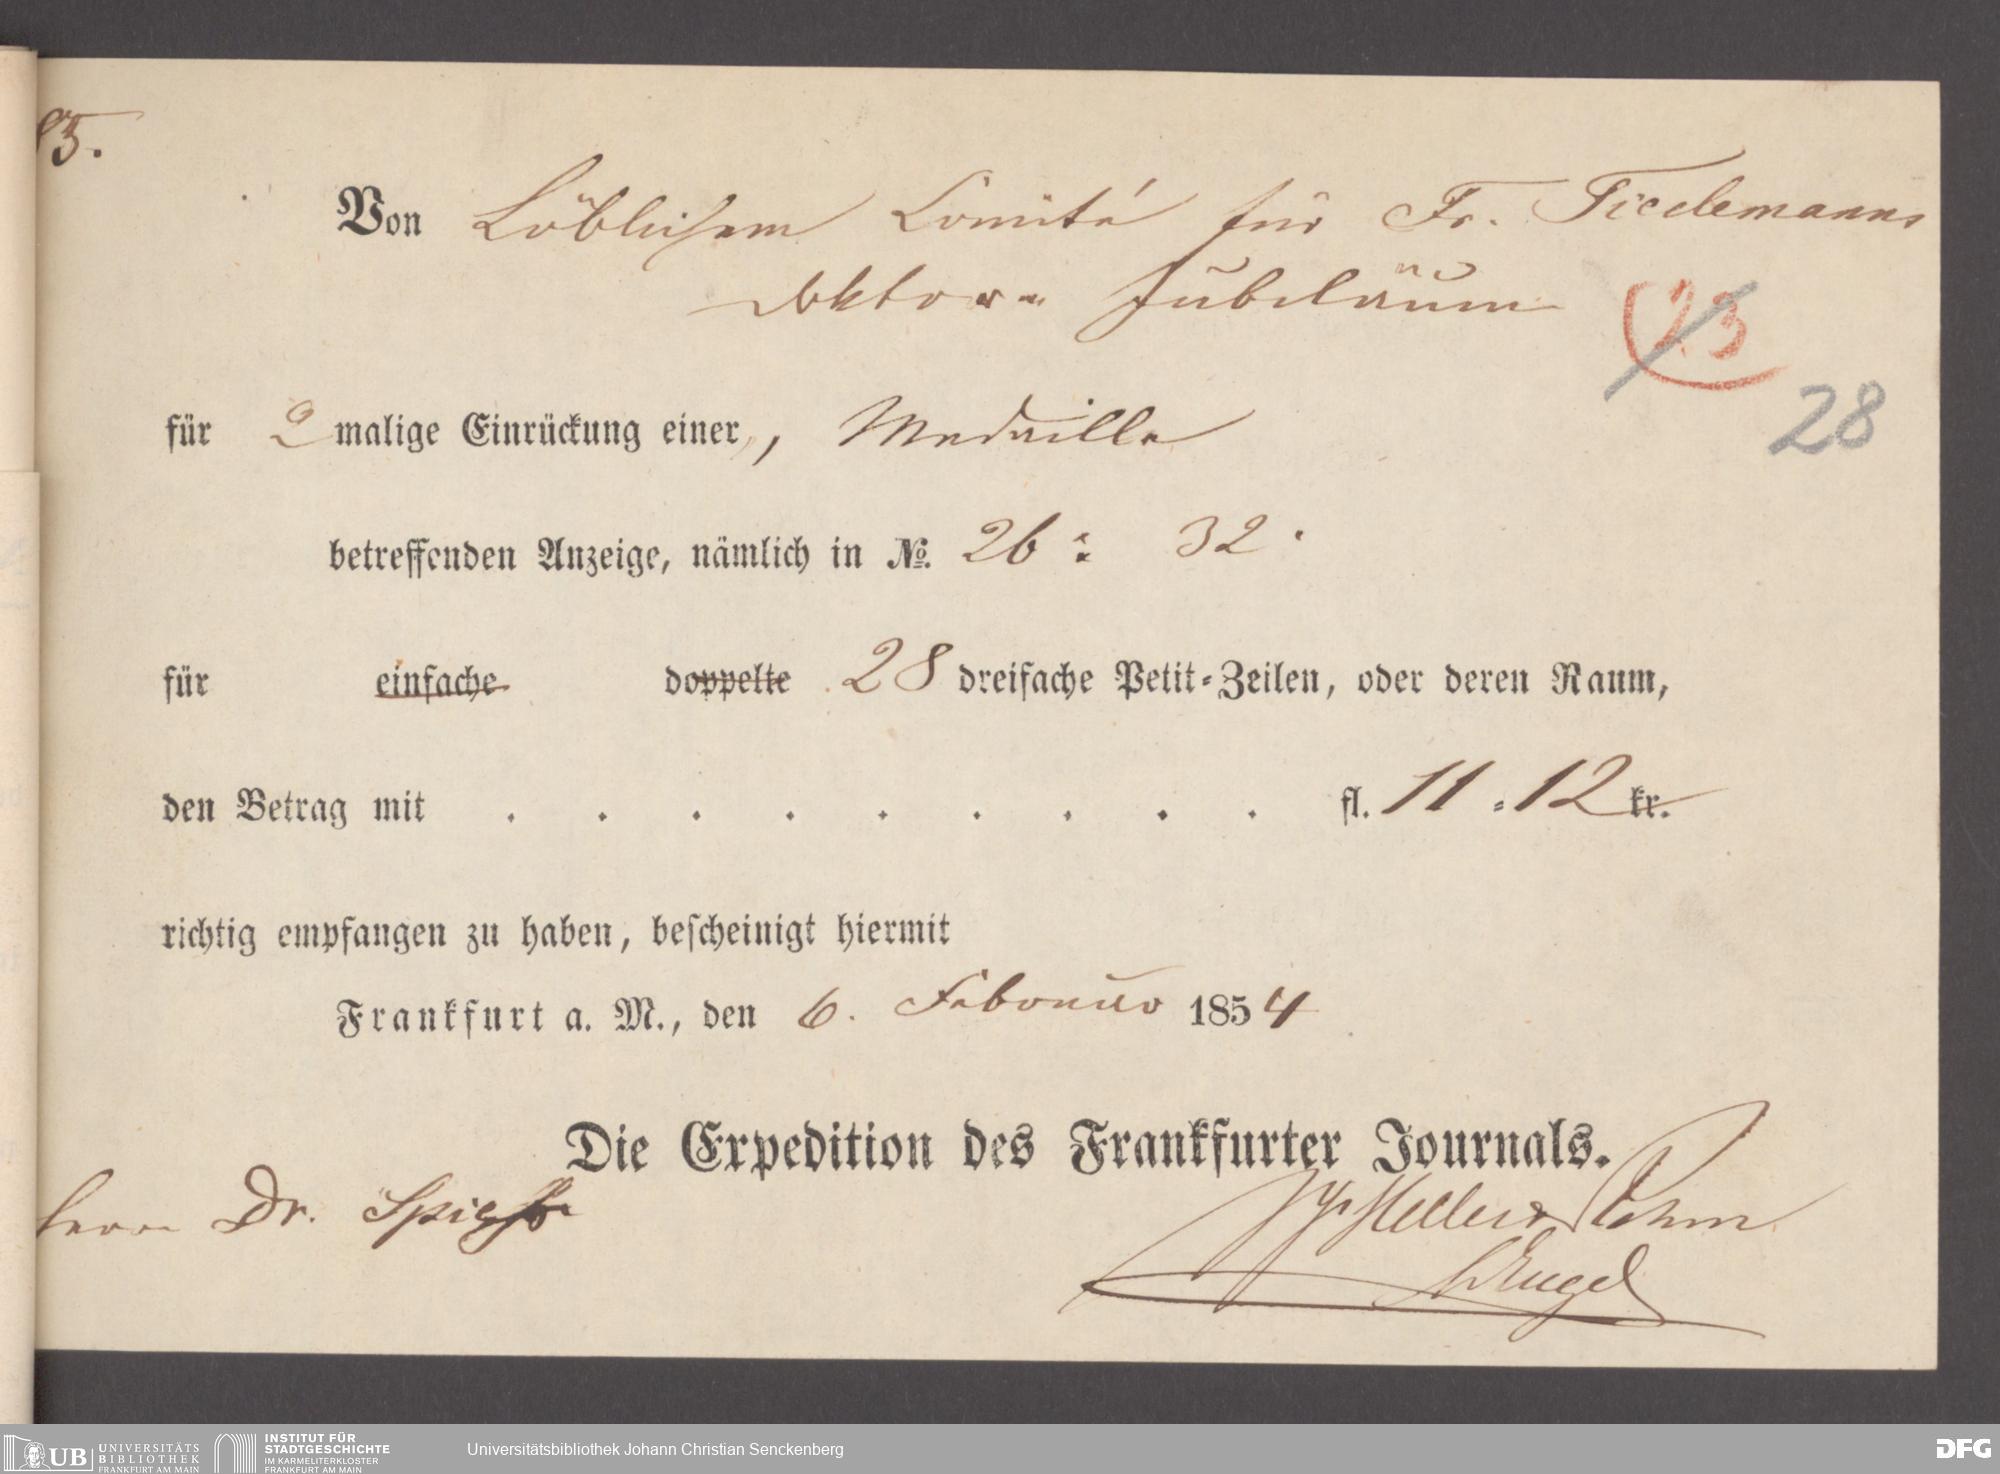 85.
Von Löblichem Comité für Fr. Tiedemanns
Doktor- Jubiläum
23
28
für 2 malige Einrückung einer, Medaille
betreffenden Anzeige, nämlich in No. 26 : 32.
für einfache doppelte 28 dreifache Petit-Zeilen, oder deren Raum,
den Betrag mit . . . . . . . . . fl. 11 . 12 kr.
richtig empfangen zu haben, bescheinigt hiermit
Frankfurt a. M., den 6. Februar 1854
Die Expedition des Frankfurter Journals.
Herrn Dr. Spieß
Heller & Rohm
UB UNIVERSITÄTS BIBLIOTHEK FRANKFURT AM MAIN
INSTITUT FÜR STADTGESCHICHTE IM KARMELITERKLOSTER FRANKFURT AM MAIN
Universitätsbibliothek Johann Christian Senckenberg
DFG